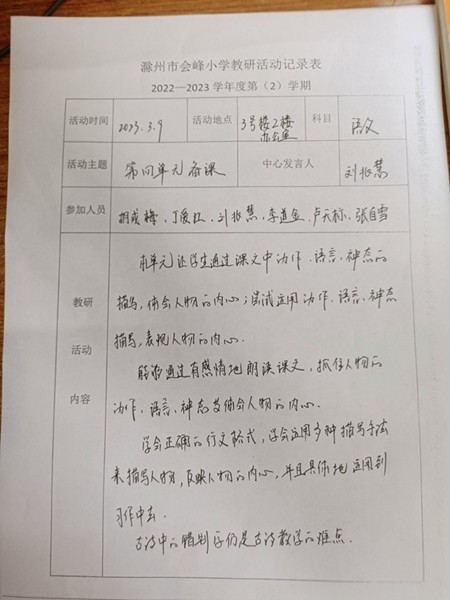 滁州市会峰小学教研活动记录表
2022—2023 学年度第（2）学期
活动时间 2023.3.9 活动地点 3号楼2楼 科目 语文
办公室
活动主题 第四单元备课 中心发言人 刘兆慧
参加人员 胡成梅、丁爱红、刘兆慧、李道金、卢天标、张自雪
本单元让学生通过课文中动作、语言、神态的
教研 描写，体会人物的内心；尝试运用动作、语言、神态
活动 描写，表现人物的内心。
能够通过有感情地朗读课文，抓住人物的
内容 动作、语言、神态及体会人物的内心。
学会正确的行文格式，学会运用多种描写手法
来描写人物，反映人物的内心，并且具体地运用到
习作中去。
古诗中的错别字仍是古诗教学的难点。